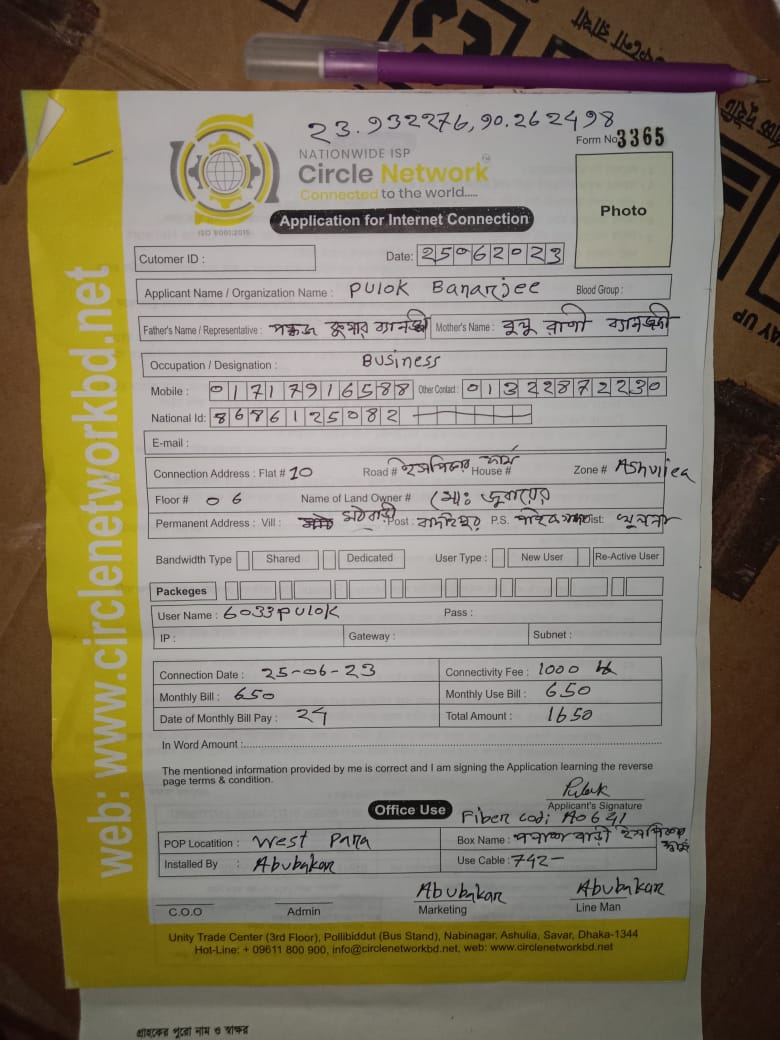 23.932276, 90.262498
Form No 3365
NATIONWIDE ISP
Circle Network
Connected to the world.....
ISO 9001:2015
Application for Internet Connection
Photo
Cutomer ID :
Date: 25062023
Applicant Name / Organization Name : Pulok Bananjee Blood Group :
Father's Name / Representative : পঙ্কজ কুমার ব্যানার্জী Mother's Name : রানী ব্যানার্জী
Occupation / Designation : Business
Mobile : 01717916588 Other Contact : 01322872230
National Id: 8686125082
E-mail :
Connection Address : Flat # 10 Road # House # Zone # Ashuliea
Floor # 06 Name of Land Owner # মোঃ জুবায়ের
Permanent Address : Vill : Post : P.S. Dist: খুলনা
Bandwidth Type Shared Dedicated User Type : New User Re-Active User
Packeges
User Name : 6033pulok Pass :
IP : Gateway : Subnet :
Connection Date : 25-06-23 Connectivity Fee : 1000
Monthly Bill : 650 Monthly Use Bill : 650
Date of Monthly Bill Pay : 24 Total Amount : 1650
In Word Amount :
The mentioned information provided by me is correct and I am signing the Application learning the reverse
page terms & condition.
Pulok
Applicant's Signature
Office Use
Fiber codi A0641
POP Locatition : West Para Box Name :
Installed By : Abubakar Use Cable : 742-
Abubakar Abubakar
C.O.O Admin Marketing Line Man
Unity Trade Center (3rd Floor), Pollibiddut (Bus Stand), Nabinagar, Ashulia, Savar, Dhaka-1344
Hot-Line: + 09611 800 900, info@circlenetworkbd.net, web: www.circlenetworkbd.net
web: www.circlenetworkbd.net
গ্রাহকের পুরো নাম ও স্বাক্ষর